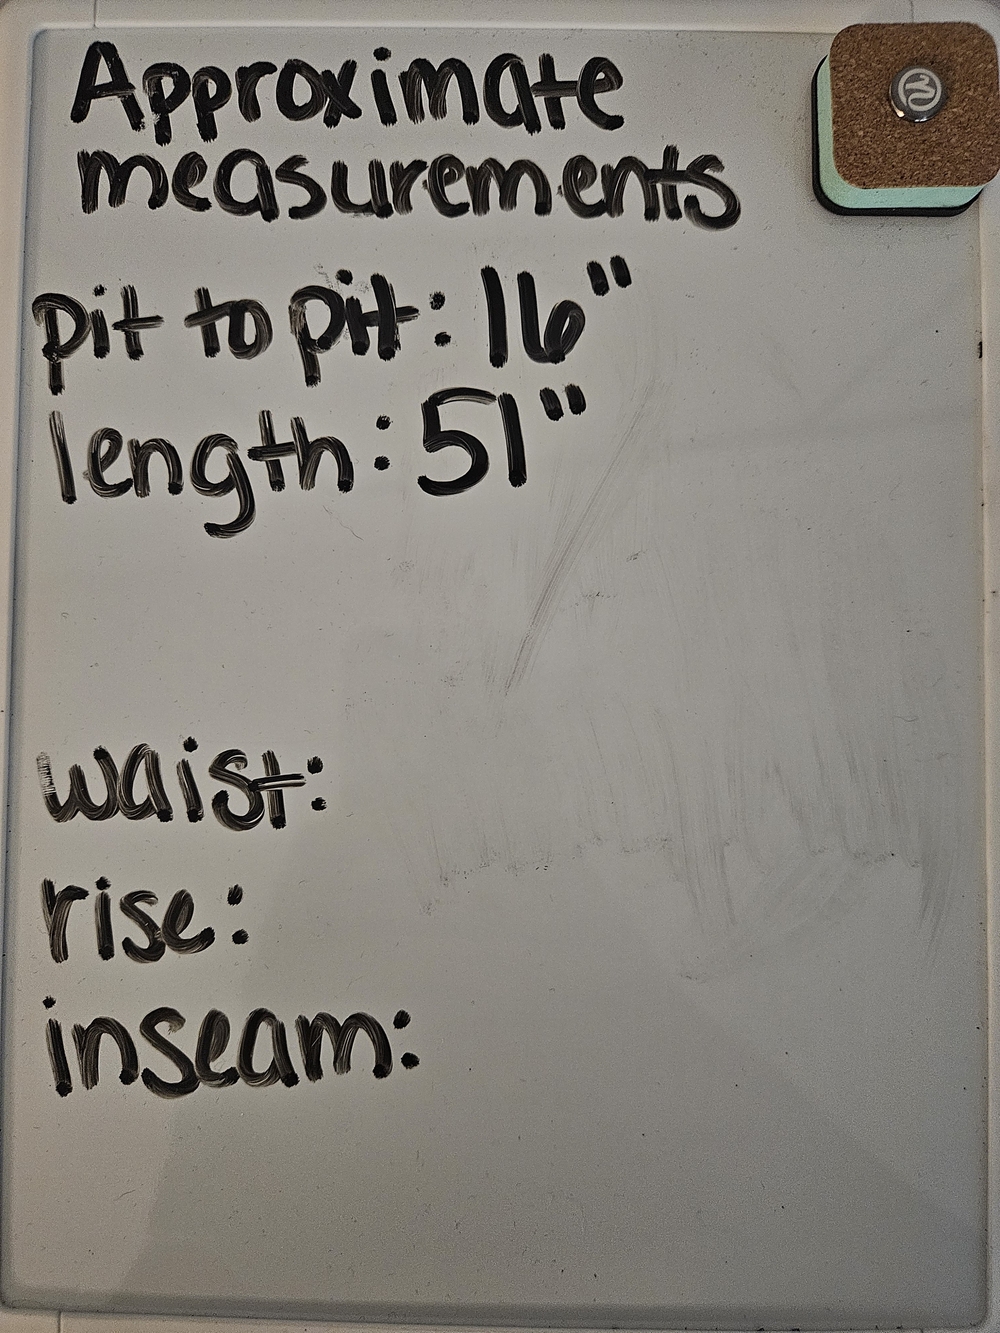 Approximate
measurements
pit to pit: 16"
length: 51"
waist:
rise:
inseam: